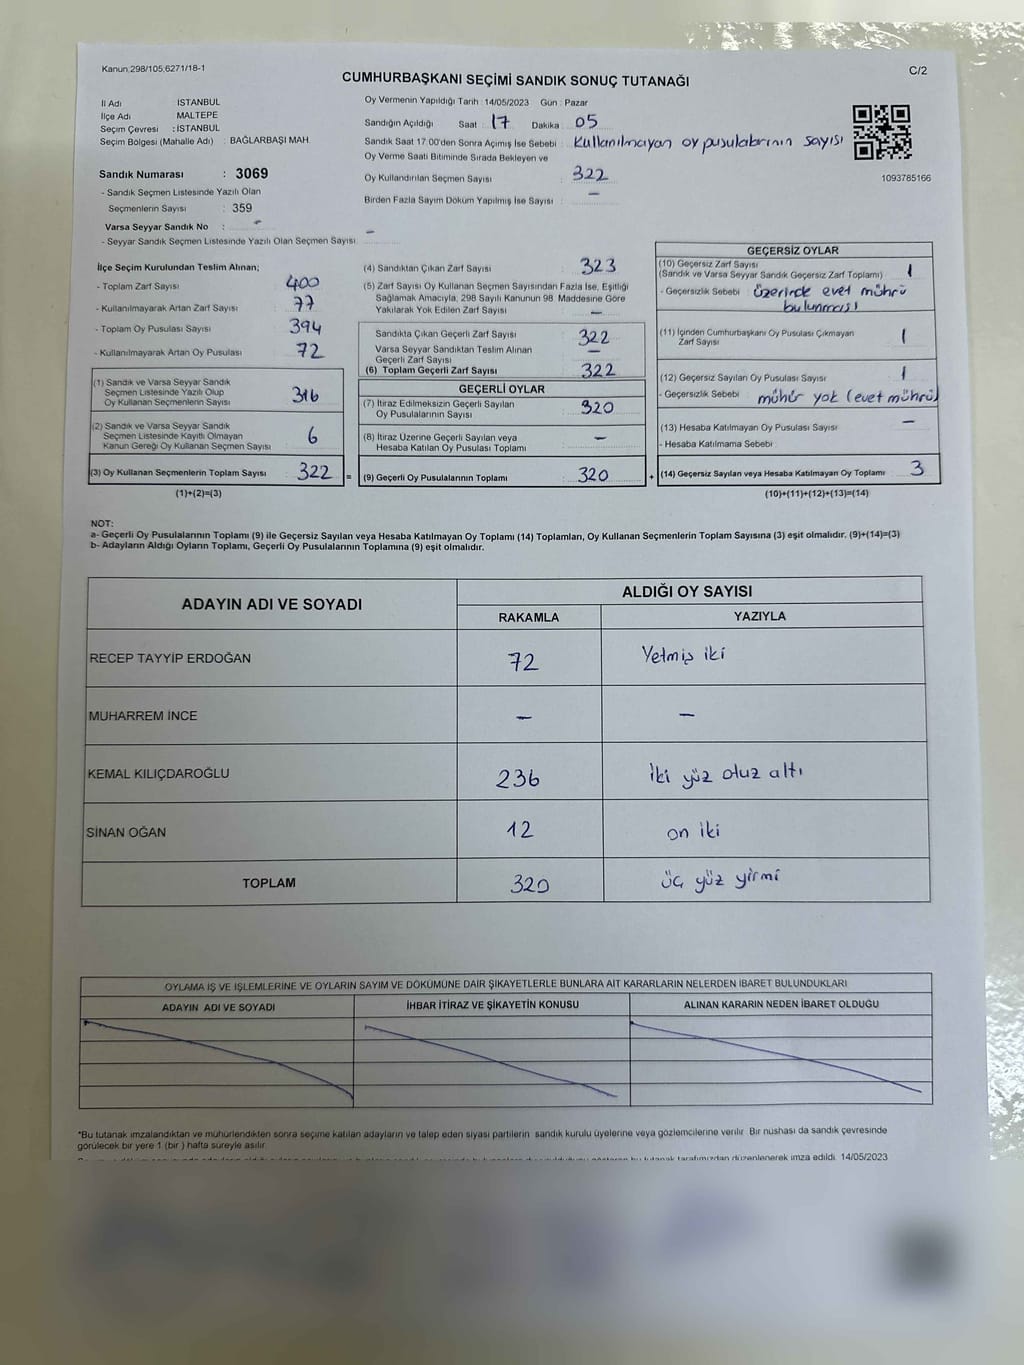 Kanun:298/105;6271/18-1
C/2
CUMHURBAŞKANI SEÇİMİ SANDIK SONUÇ TUTANAĞI
İl Adı İSTANBUL
İlçe Adı MALTEPE
Seçim Çevresi : İSTANBUL
Seçim Bölgesi (Mahalle Adı) : BAĞLARBAŞI MAH.
Oy Vermenin Yapıldığı Tarih : 14/05/2023 Gün : Pazar
Sandığın Açıldığı Saat : 17 Dakika : 05
Sandık Saat 17.00'den Sonra Açımış İse Sebebi : Kullanılmayan oy pusulalarının sayısı
Oy Verme Saati Bitiminde Sırada Bekleyen ve
Oy Kullandırılan Seçmen Sayısı : 322
Birden Fazla Sayım Döküm Yapılmış İse Sayısı : –
1093785166
Sandık Numarası : 3069
- Sandık Seçmen Listesinde Yazılı Olan
Seçmenlerin Sayısı : 359
Varsa Seyyar Sandık No : -
- Seyyar Sandık Seçmen Listesinde Yazılı Olan Seçmen Sayısı: –
İlçe Seçim Kurulundan Teslim Alınan;
- Toplam Zarf Sayısı : 400
- Kullanılmayarak Artan Zarf Sayısı : 77
- Toplam Oy Pusulası Sayısı : 394
- Kullanılmayarak Artan Oy Pusulası : 72
(1) Sandık ve Varsa Seyyar Sandık
Seçmen Listesinde Yazılı Olup
Oy Kullanan Seçmenlerin Sayısı : 316
(2) Sandık ve Varsa Seyyar Sandık
Seçmen Listesinde Kayıtlı Olmayan
Kanun Gereği Oy Kullanan Seçmen Sayısı : 6
(3) Oy Kullanan Seçmenlerin Toplam Sayısı : 322 =
(1)+(2)=(3)
(4) Sandıktan Çıkan Zarf Sayısı : 323
(5) Zarf Sayısı Oy Kullanan Seçmen Sayısından Fazla İse, Eşitliği
Sağlamak Amacıyla, 298 Sayılı Kanunun 98. Maddesine Göre
Yakılarak Yok Edilen Zarf Sayısı : –
Sandıkta Çıkan Geçerli Zarf Sayısı : 322
Varsa Seyyar Sandıktan Teslim Alınan
Geçerli Zarf Sayısı : –
(6) Toplam Geçerli Zarf Sayısı : 322
GEÇERLİ OYLAR
(7) İtiraz Edilmeksizin Geçerli Sayılan
Oy Pusulalarının Sayısı : 320
(8) İtiraz Üzerine Geçerli Sayılan veya
Hesaba Katılan Oy Pusulası Toplamı : –
(9) Geçerli Oy Pusulalarının Toplamı : 320 +
GEÇERSİZ OYLAR
(10) Geçersiz Zarf Sayısı
(Sandık ve Varsa Seyyar Sandık Geçersiz Zarf Toplamı) : 1
- Geçersizlik Sebebi : üzerinde evet mührü
bulunması
(11) İçinden Cumhurbaşkanı Oy Pusulası Çıkmayan
Zarf Sayısı : 1
(12) Geçersiz Sayılan Oy Pusulası Sayısı : 1
- Geçersizlik Sebebi : mühür yok (evet mührü)
(13) Hesaba Katılmayan Oy Pusulası Sayısı : –
- Hesaba Katılmama Sebebi :
(14) Geçersiz Sayılan veya Hesaba Katılmayan Oy Toplamı : 3
(10)+(11)+(12)+(13)=(14)
NOT:
a- Geçerli Oy Pusulalarının Toplamı (9) ile Geçersiz Sayılan veya Hesaba Katılmayan Oy Toplamı (14) Toplamları, Oy Kullanan Seçmenlerin Toplam Sayısına (3) eşit olmalıdır. (9)+(14)=(3)
b- Adayların Aldığı Oyların Toplamı, Geçerli Oy Pusulalarının Toplamına (9) eşit olmalıdır.
ADAYIN ADI VE SOYADI
ALDIĞI OY SAYISI
RAKAMLA YAZIYLA
RECEP TAYYİP ERDOĞAN 72 Yetmiş iki
MUHARREM İNCE – –
KEMAL KILIÇDAROĞLU 236 İki yüz otuz altı
SİNAN OĞAN 12 on iki
TOPLAM 320 üç yüz yirmi
OYLAMA İŞ VE İŞLEMLERİNE VE OYLARIN SAYIM VE DÖKÜMÜNE DAİR ŞİKAYETLERLE BUNLARA AİT KARARLARIN NELERDEN İBARET BULUNDUKLARI
ADAYIN ADI VE SOYADI İHBAR İTİRAZ VE ŞİKAYETİN KONUSU ALINAN KARARIN NEDEN İBARET OLDUĞU
*Bu tutanak imzalandıktan ve mühürlendikten sonra seçime katılan adayların ve talep eden siyasi partilerin sandık kurulu üyelerine veya gözlemcilerine verilir. Bir nüshası da sandık çevresinde
görülecek bir yere 1 (bir ) hafta süreyle asılır.
tutanak tarafımızdan düzenlenerek imza edildi. 14/05/2023